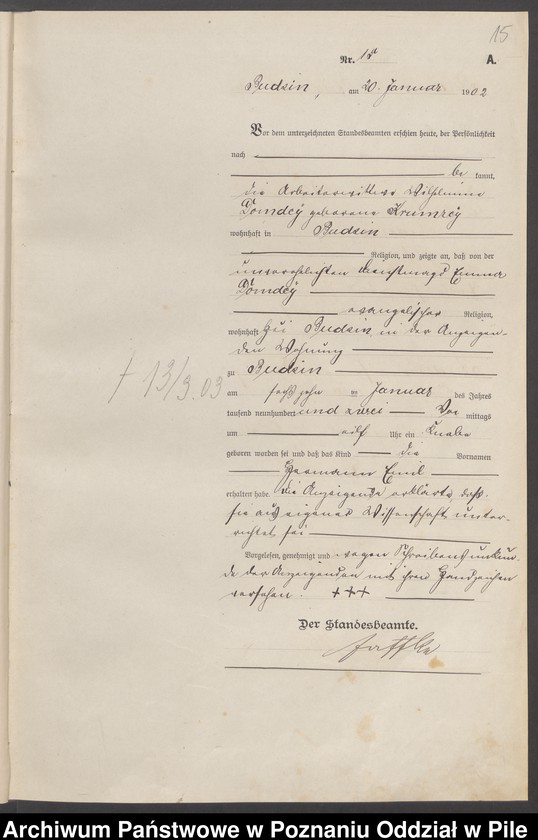 15
Nr. 15
A.
Budsin, am 20. Januar 1902
Vor dem unterzeichneten Standesbeamten erschien heute, der Persönlichkeit
nach
be kannt,
die Arbeiterwittwe Wilhelmine
Domdey geborene Krumrey
wohnhaft in Budsin
Religion, und zeigte an, daß von der
unverehelichten Dienstmagd Emma
Domdey
evangelischer Religion,
wohnhaft bei Budsin, in der Anzeigen-
den Wohnung
zu Budsin
am sechszehn ten Januar des Jahres
tausend neunhundert und zwei Vor mittags
um elf Uhr ein Knabe
geboren worden sei und daß das Kind die Vornamen
Hermann Emil
erhalten habe. Die Anzeigende erklärte, daß
sie aus eigener Wissenschaft unter-
richtet sei
Vorgelesen, genehmigt und wegen Schreibensunkun-
de der Anzeigenden mit ihren Handzeichen
versehen. +++
Der Standesbeamte.
† 13/3.03
Archiwum Państwowe w Poznaniu Oddział w Pile